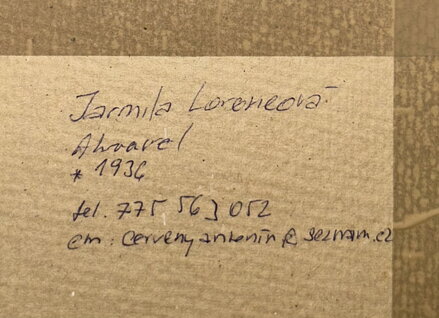 Jarmila Lorencová
Akvarel
* 1936
tel. 775 563 052
em: cervenyantonin@seznam.cz